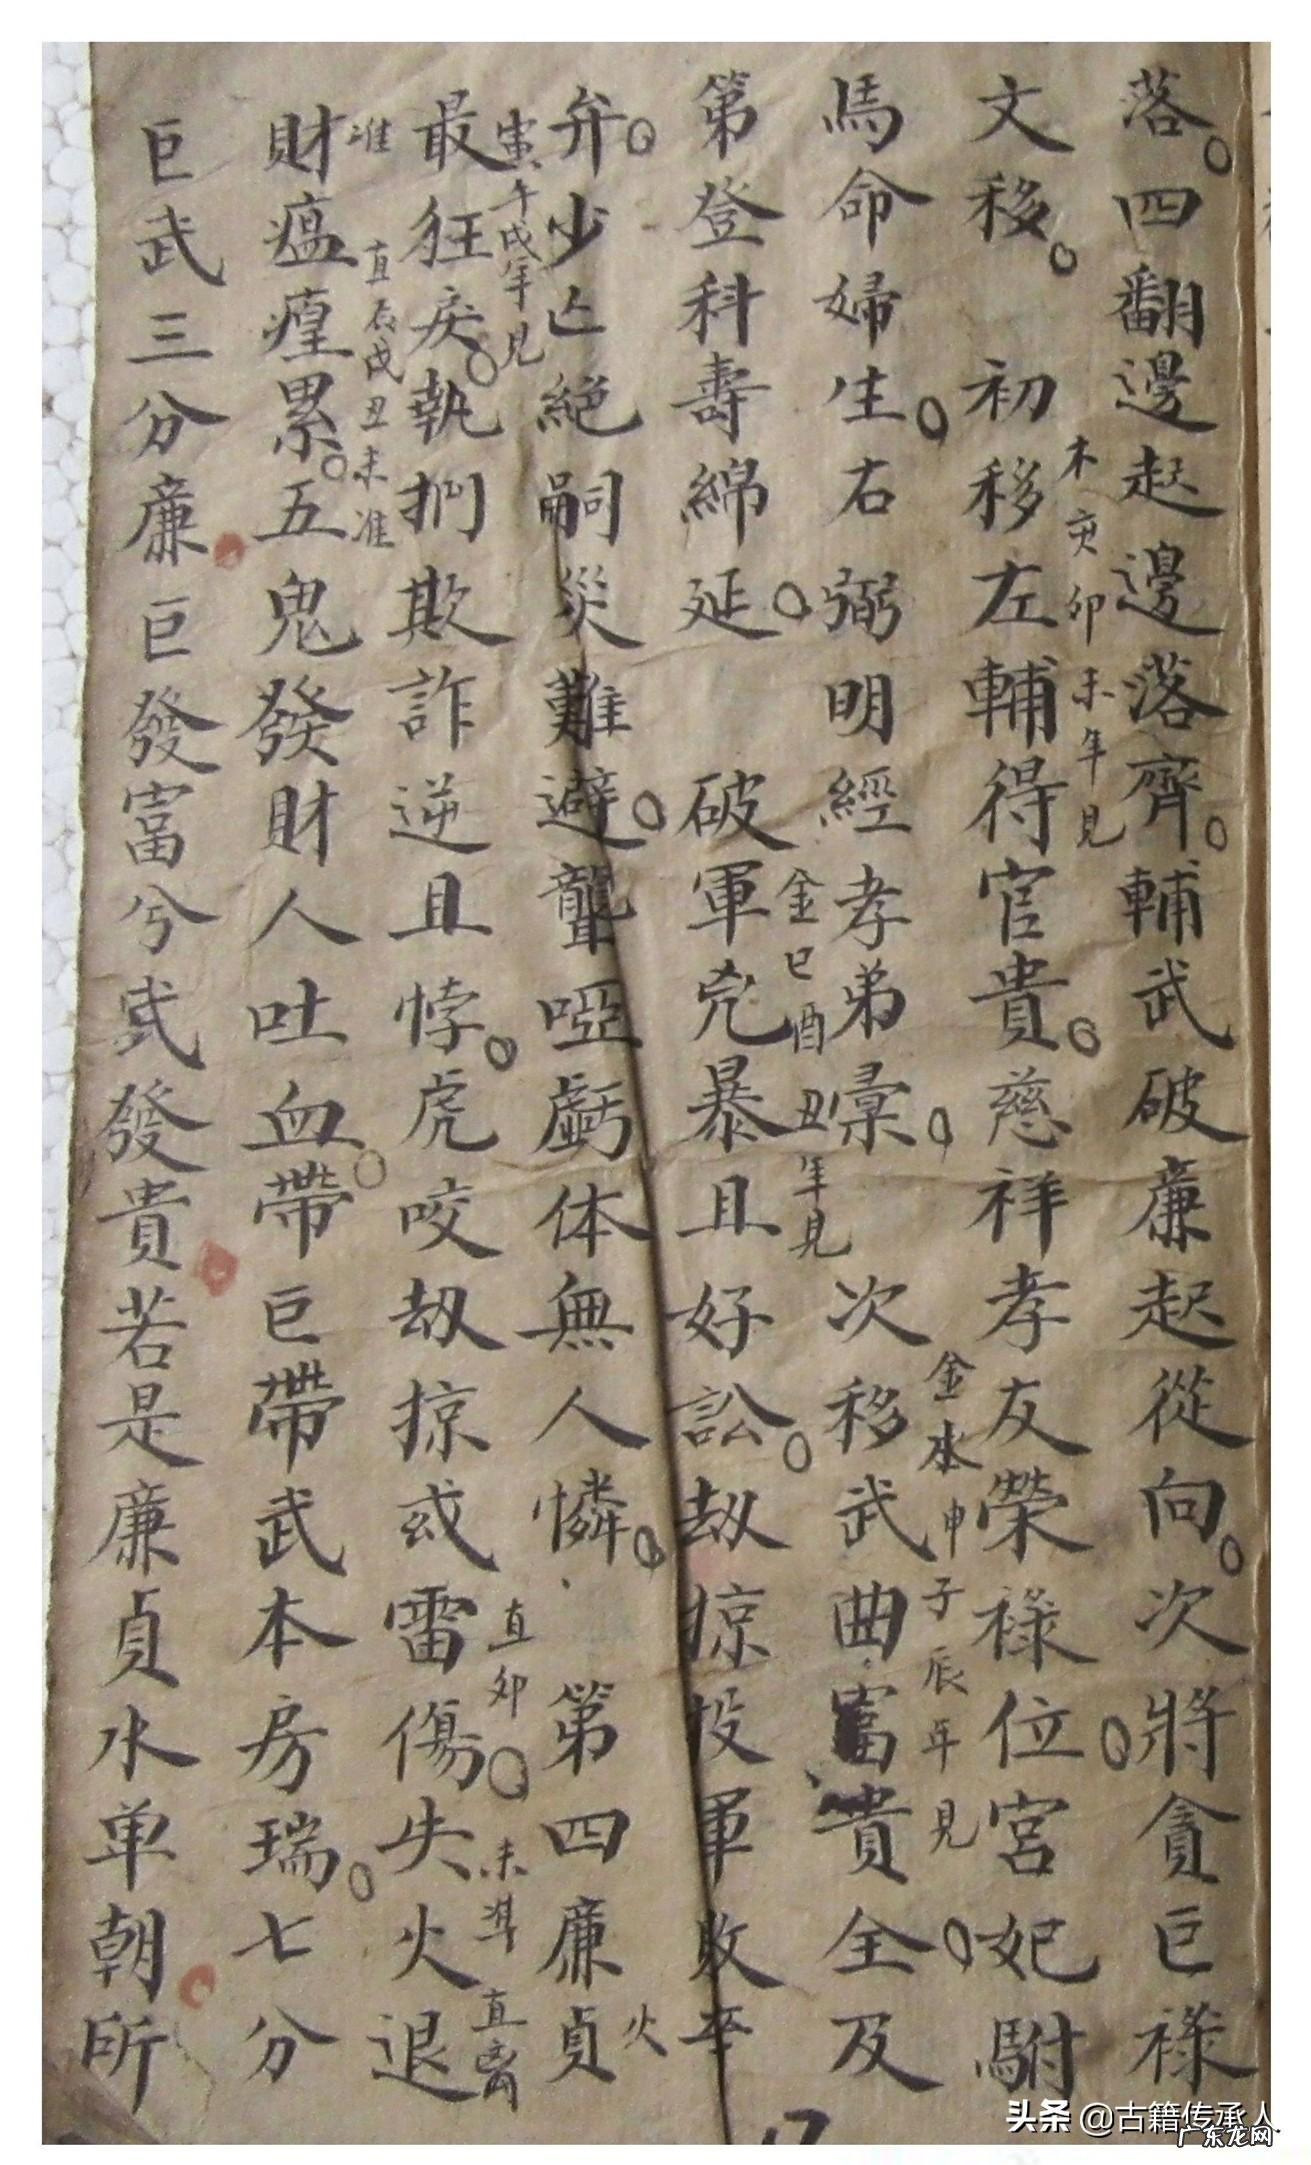 落四翻邊起邊落齊輔武破廉起從向次將貪巨祿
文移初移左輔得官貴慈祥孝友榮祿位宮妃駙
木亥卯未年見
馬命婦生右弼明經孝弟稟次移武曲富貴全及
金水申子辰年見
第登科壽綿延破軍兇暴且好訟劫掠投軍敗卒
金巳酉丑年見
弁少亡絕嗣災難避聾啞虧体無人憐第四廉貞
火
寅午戌年見
最狂疾執拗欺詐逆且悖虎咬劫掠或雷傷失火退
直卯未準直离
財瘟瘟累五鬼發財人吐血帶巨帶武本房瑞七分
准直辰戌丑未准
巨武三分廉巨發富兮武發貴若是廉貞水单朝所
头条 @古籍传承人
广东龙网